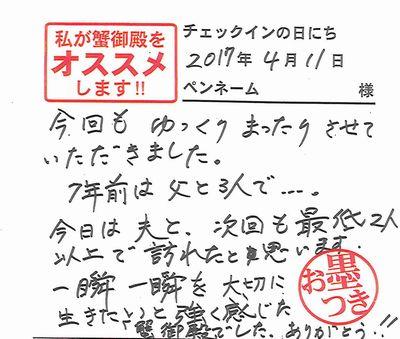 私が蟹御殿を
オススメ
します!!
チェックインの日にち
2017年4月11日
ペンネーム 様
今回も ゆっくり まったり させて
いただきました。
7年前は 父と3人で・・・・。
今日は 夫と、次回も最低2人
以上で訪れたいと思います。
一瞬 一瞬を 大切に
生きたいと 強く感じた
蟹御殿でした。ありがとう!!
お墨
つき